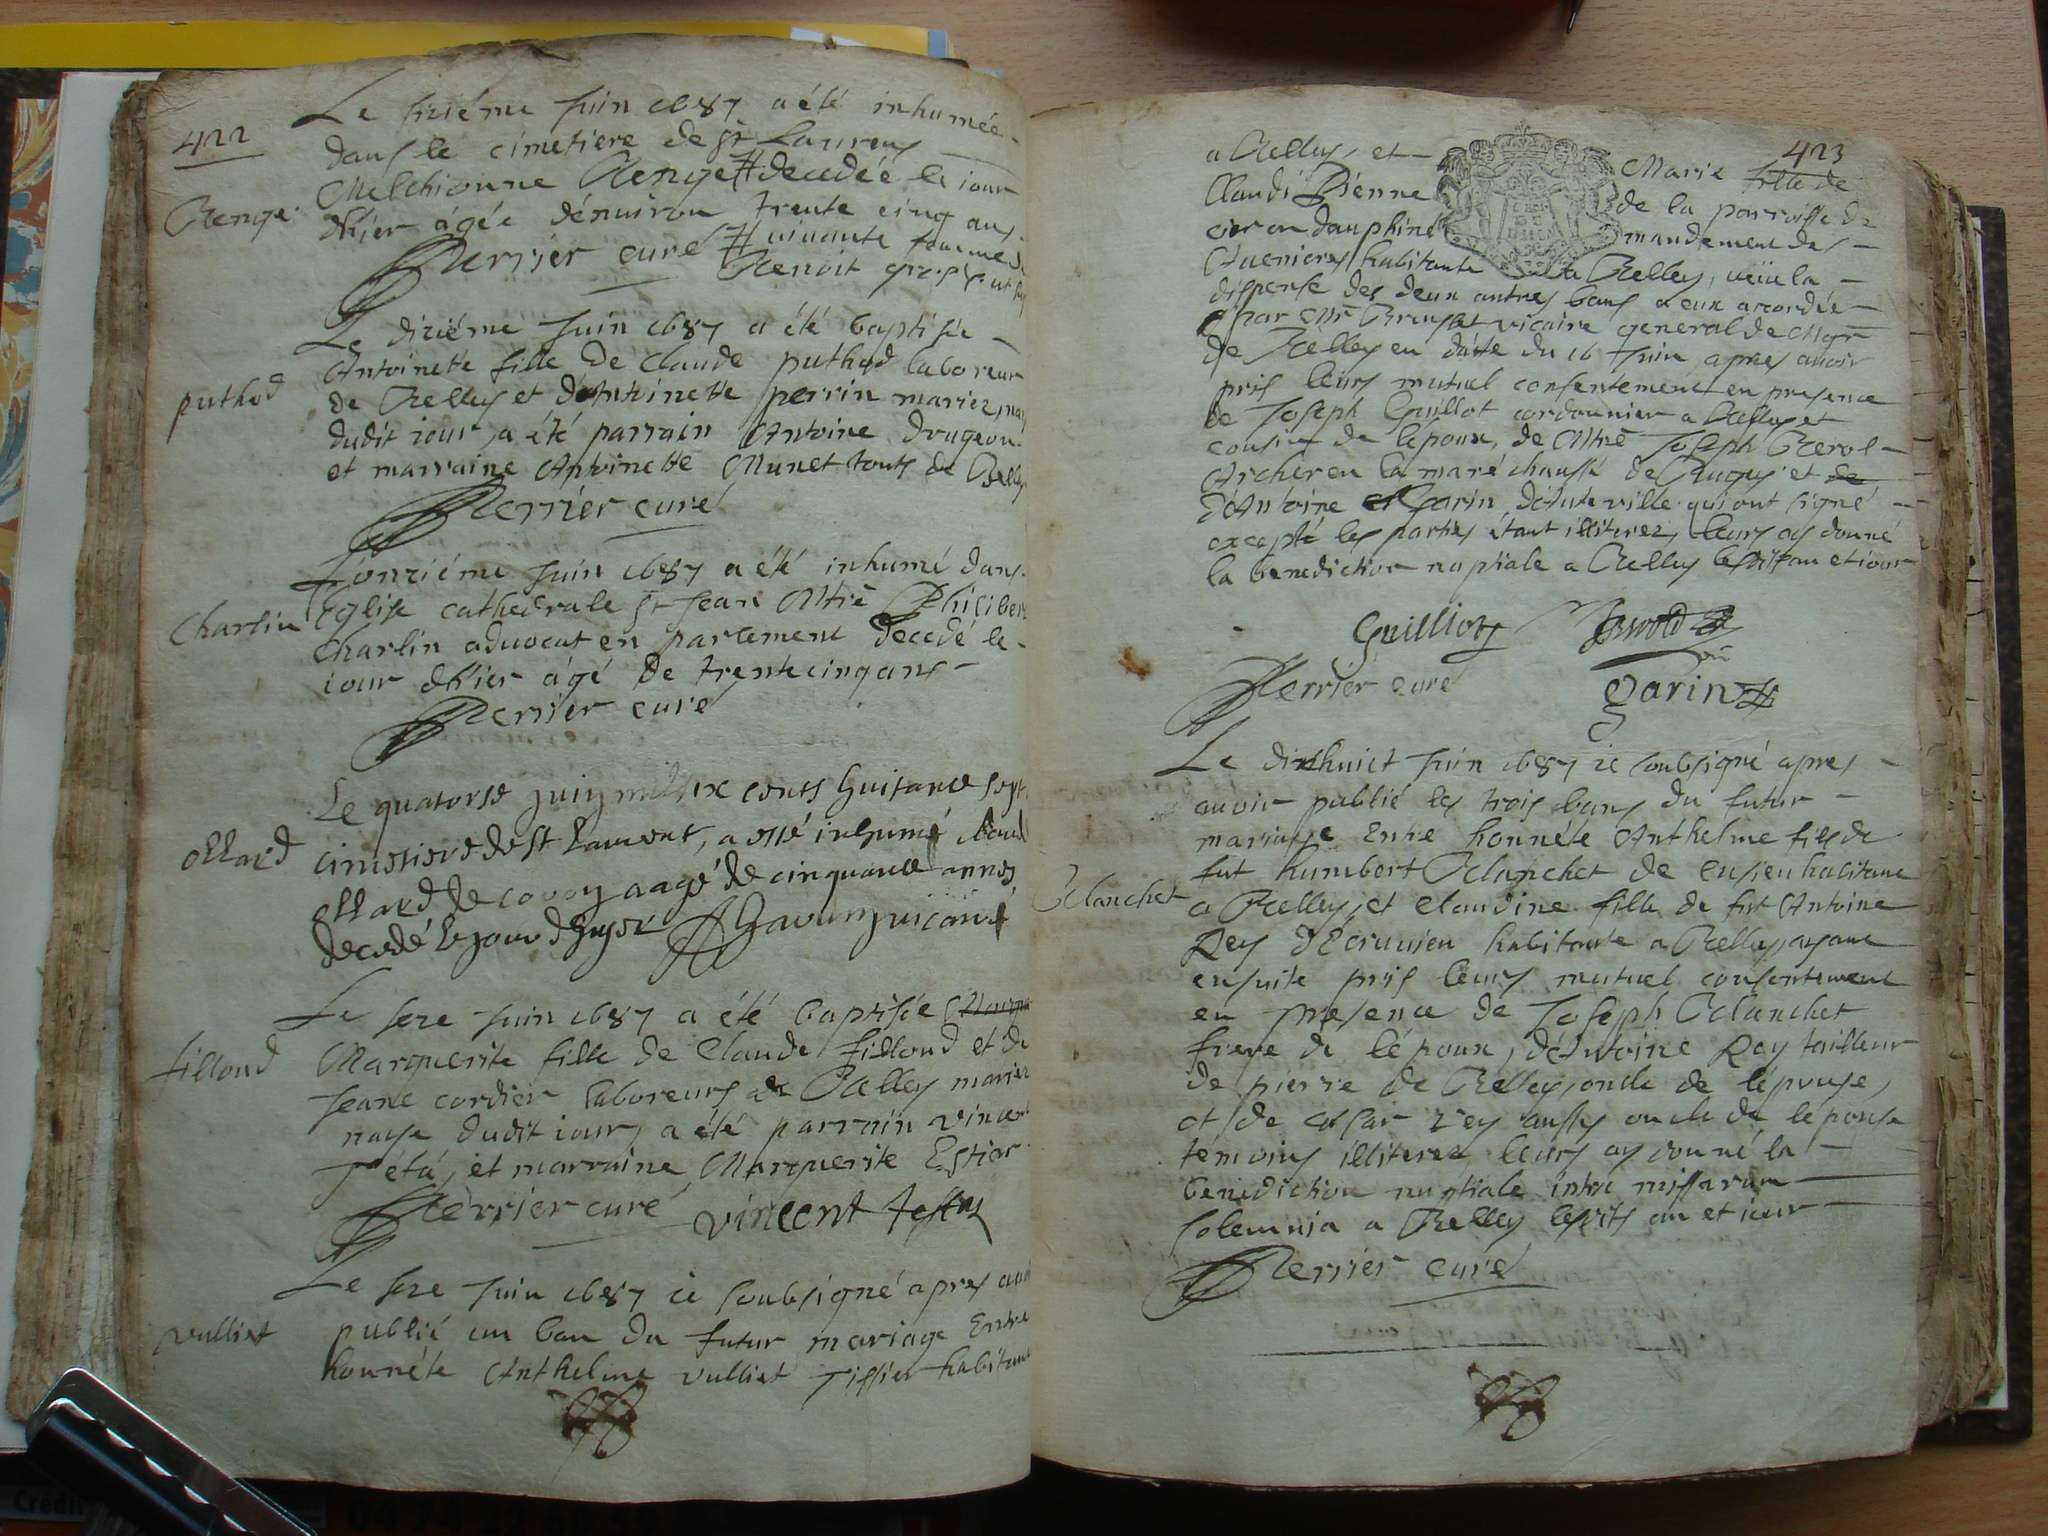 422
Le sixiéme Juin 1687 a été inhumée
dans le cimetiere de St Laurens
Melchionne Benge # decedée le iour
Benge
dhier âgée dénuiron trente cinq ans.
Perrier curé # viuante femme de
Benoit
Le dixiéme Juin 1687 a été baptisée
Antoinette fille de Claude puthod laboreur
puthod
de Belley et dAntoinette perrin mariez, nay
dudit iour, a été parrain Antoine Drugeon
et marraine Antoinette Munet touts de Belley
Perrier curé
Lonziéme Juin 1687 a été inhumé dans
léglise cathedrale St Jean Mtre Philibert
Charlin
Charlin aduocat en parlement decedé le
iour dhier âgé de trente cinq ans
Perrier curé
Le quatorse juin mil six cents huitante sept
cimetiere de St Laurent, a esté inhumé Claud
ollard
ollard de coron aagé de cinquante annes
decedé le jour dhyer vicaire
Le seze Juin 1687 a été baptisée
Marguerite fille de Claude fillond et de
fillond
Jeane cordier laboreurs de Belley mariez
naye dudit iour, a été parrain vincent
Tété, et marraine Marguerite Estier
Perrier curé vincent testas
Le seze Juin 1687 ie soubsigné apres auoir
publié un ban du futur mariage Entre
vulliet
honnéte Anthelme vulliet Tissier habitant
423
a Belley, et Marie fille de
Claude Bienne de la parroisse de
ciers en dauphiné mandement des
Auenieres habitante a Belley, veüe la
dispense des deux autres bans a eux accordée
par Mre Bruyset vicaire general de Mgr
de Belley en datte du 16 Juin apres auoir
pris leurs mutuel consentement en presence
de Joseph Guillot cordonnier a Belley et
cousin de lépoux, de Mtre Joseph Berol
Archer en la maréchaussé de Bugey et de
dAntoine Garin, dAuteville qui ont signé
excepté les parties étant illiterez, leurs ay donné
la benediction nuptiale a Belley lesdits an et iour
Guilliot
Perrier curé Garin
Le dixhuict Juin 1687 ie soubsigné apres
auoir publié les trois bans du futur
mariage Entre honnéte Anthelme fils de
fut humbert Blanchet de Ensieu habitant
Blanchet
a Belley, et Claudine fille de fut Antoine
Rey dEcriuieu habitante a Belley, ayant
ensuite pris leurs mutuel consentement
en presence de Joseph Blanchet
frere de lépoux, dAntoine Rey tailleur
de pierre de Belley, oncle de lépouse,
et de César Rey aussy oncle de lepouse
témoins illiterez, leurs ay donné la
benediction nuptiale intra missarum
solemnia a Belley lesdits an et iour
Perrier curé